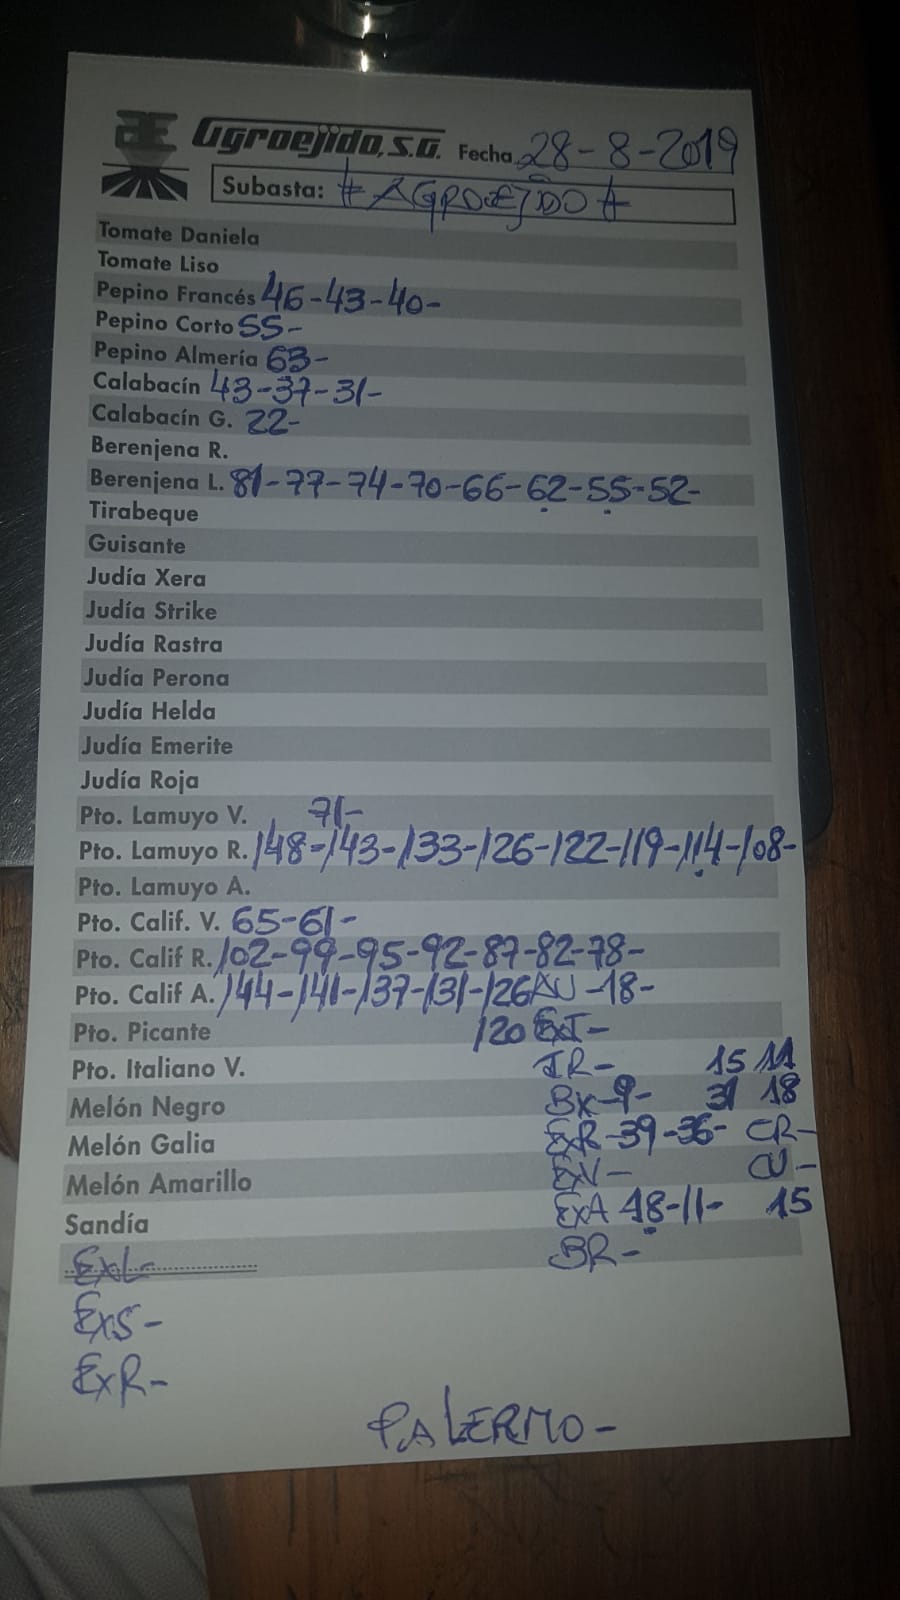 Agroejido, S.A. Fecha 28-8-2019
Subasta: # AGROEJIDO #
Tomate Daniela
Tomate Liso
Pepino Francés 46-43-40-
Pepino Corto 55-
Pepino Almería 63-
Calabacín 43-37-31-
Calabacín G. 22-
Berenjena R.
Berenjena L. 81-77-74-70-66-62-55-52-
Tirabeque
Guisante
Judía Xera
Judía Strike
Judía Rastra
Judía Perona
Judía Helda
Judía Emerite
Judía Roja
Pto. Lamuyo V. 71-
Pto. Lamuyo R. 148-143-133-126-122-119-114-108-
Pto. Lamuyo A.
Pto. Calif. V. 65-61-
Pto. Calif R. 102-99-95-92-87-82-78-
Pto. Calif A. 144-141-137-131-126 AU -18-
Pto. Picante 120 ExT-
Pto. Italiano V. IR- 15 11
Melón Negro Bx-9- 31 18
Melón Galia ExR-39-36- CR-
Melón Amarillo ExV- CV-
Sandía ExA 18-11- 15
ExL- BR-
ExS-
ExR-
PALERMO-